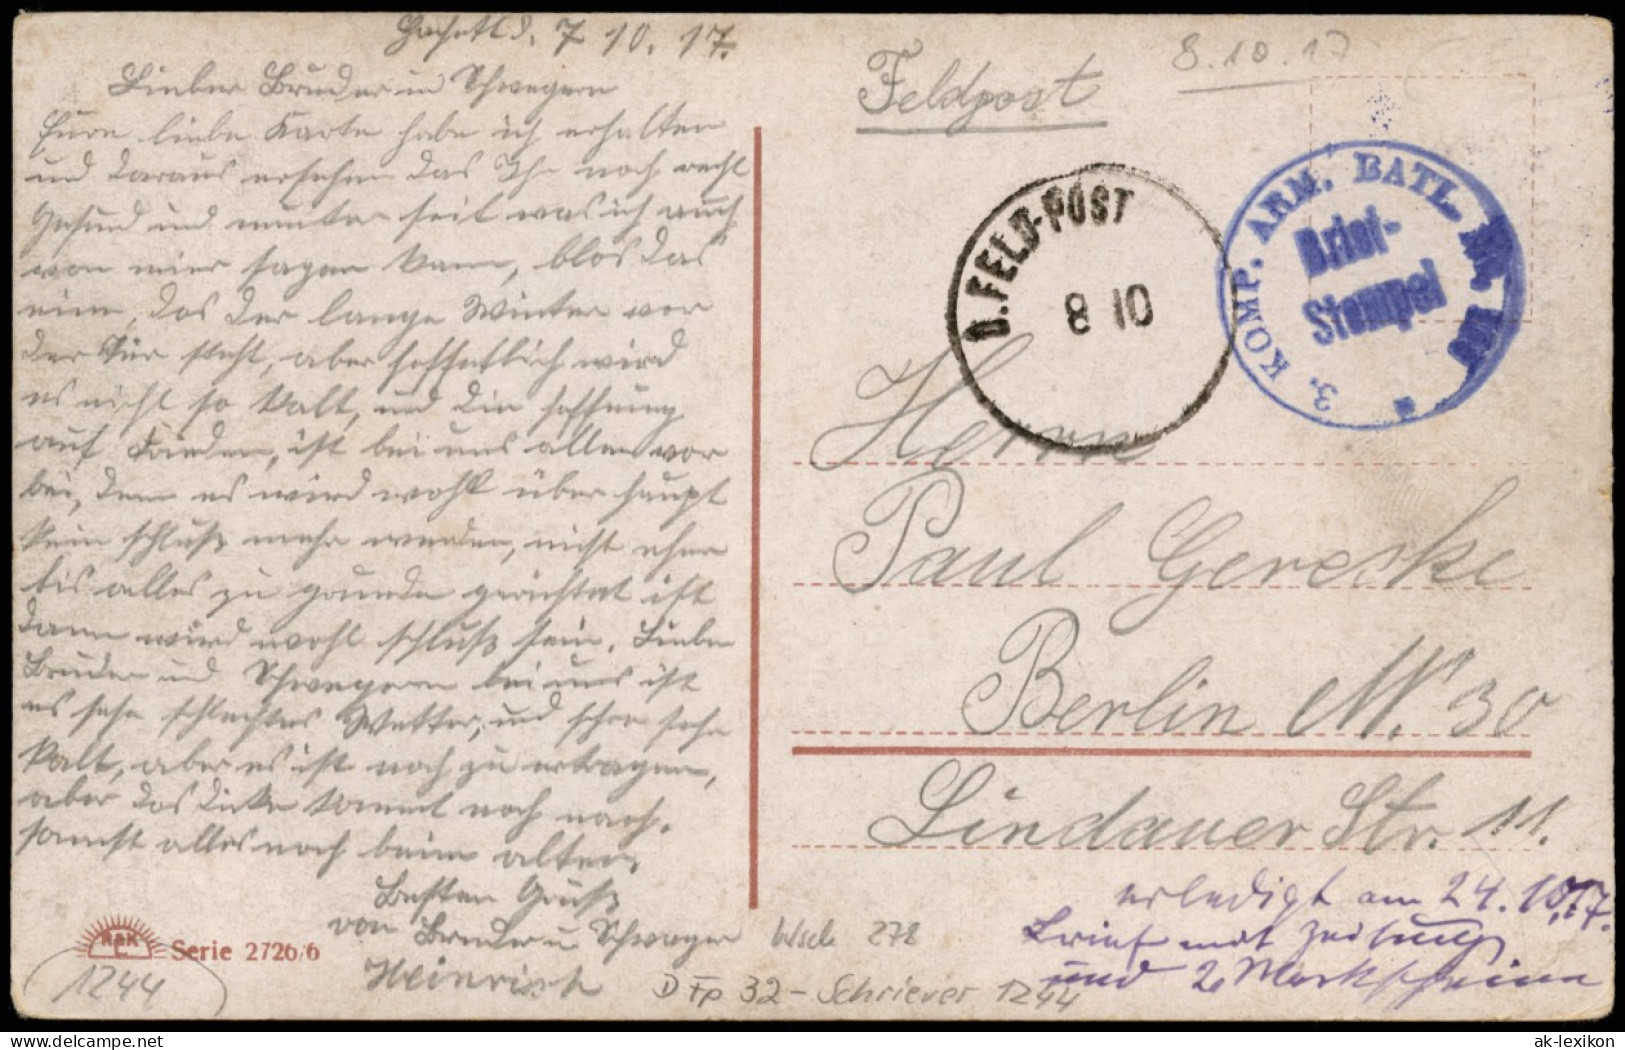 7. 10. 17.
Lieber Bruder u Schwegern
Eure liebe Karte habe ich erhalten
und daraus ersehen das Ihr noch recht
Gesund und munter seit was ich auch
von mier sagen kann, blos das
eine, das der lange Winter vor
der Tür steht, aber hoffentlich wird
es nicht so kalt, und die hoffnung
auf Frieden, ist bei uns allen vor
bei, denn es wird wohl überhaupt
kein schluß mehr werden, nicht eher
bis alles zu grunde gerichtet ist
dann wird wohl schluß sein. Lieber
Bruder und Schwegern bei uns ist
es sehr schlechtes Wetter, und schon sehr
kalt, aber es ist noch zu ertragen,
aber das dicke kommt noch nach.
sonst alles noch beim alten.
Besten Gruß
von Bruder u Schwager
Heinrich
R&K
L
Serie 2726/6
1244
Feldpost
8.10.17
D. FELD-POST
8 10
3. KOMP. ARM. BATL.
Brief-
Stempel
Herrn
Paul Gereske
Berlin W. 30
Lindauer Str. 11.
erledigt am 24.10.17.
Brief mit Zeitung
und 2 Markscheine
278
D Fp 32 - Schriever 1244
ak-lexikon